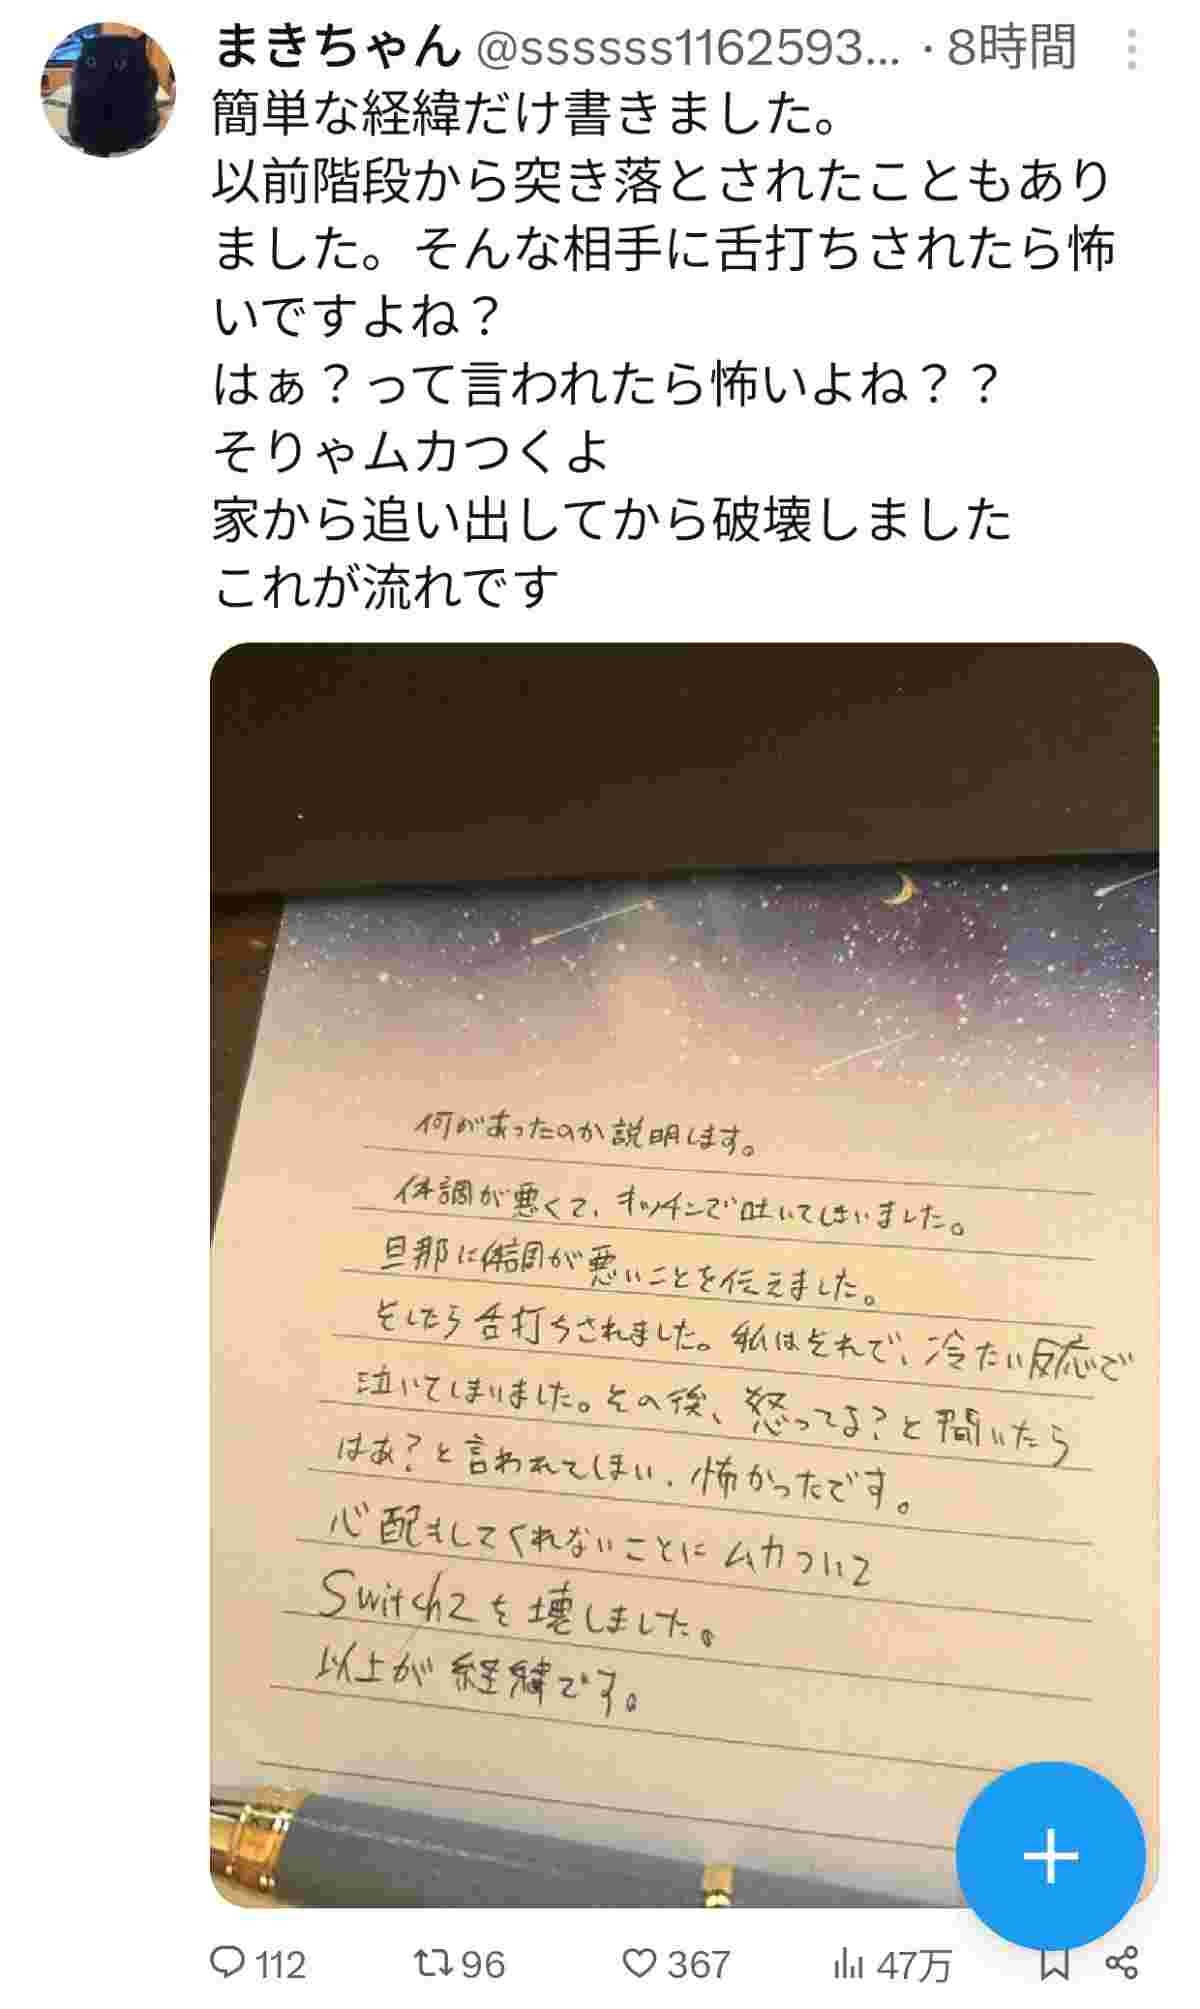 まきちゃん @ssssss1162593... · 8時間
簡単な経緯だけ書きました。
以前階段から突き落とされたこともあり
ました。そんな相手に舌打ちされたら怖
いですよね？
はぁ？って言われたら怖いよね？？
そりゃムカつくよ
家から追い出してから破壊しました
これが流れです
何があったのか説明します。
体調が悪くて、キッチンで吐いてしまいました。
旦那に体調が悪いことを伝えました。
そしたら舌打ちされました。私はそれで、冷たい反応で
泣いてしまいました。その後、怒ってる？と聞いたら
はあ？と言われてしまい、怖かったです。
心配もしてくれないことにムカついて
Switch2を壊しました。
以上が経緯です。
112 96 367 47万